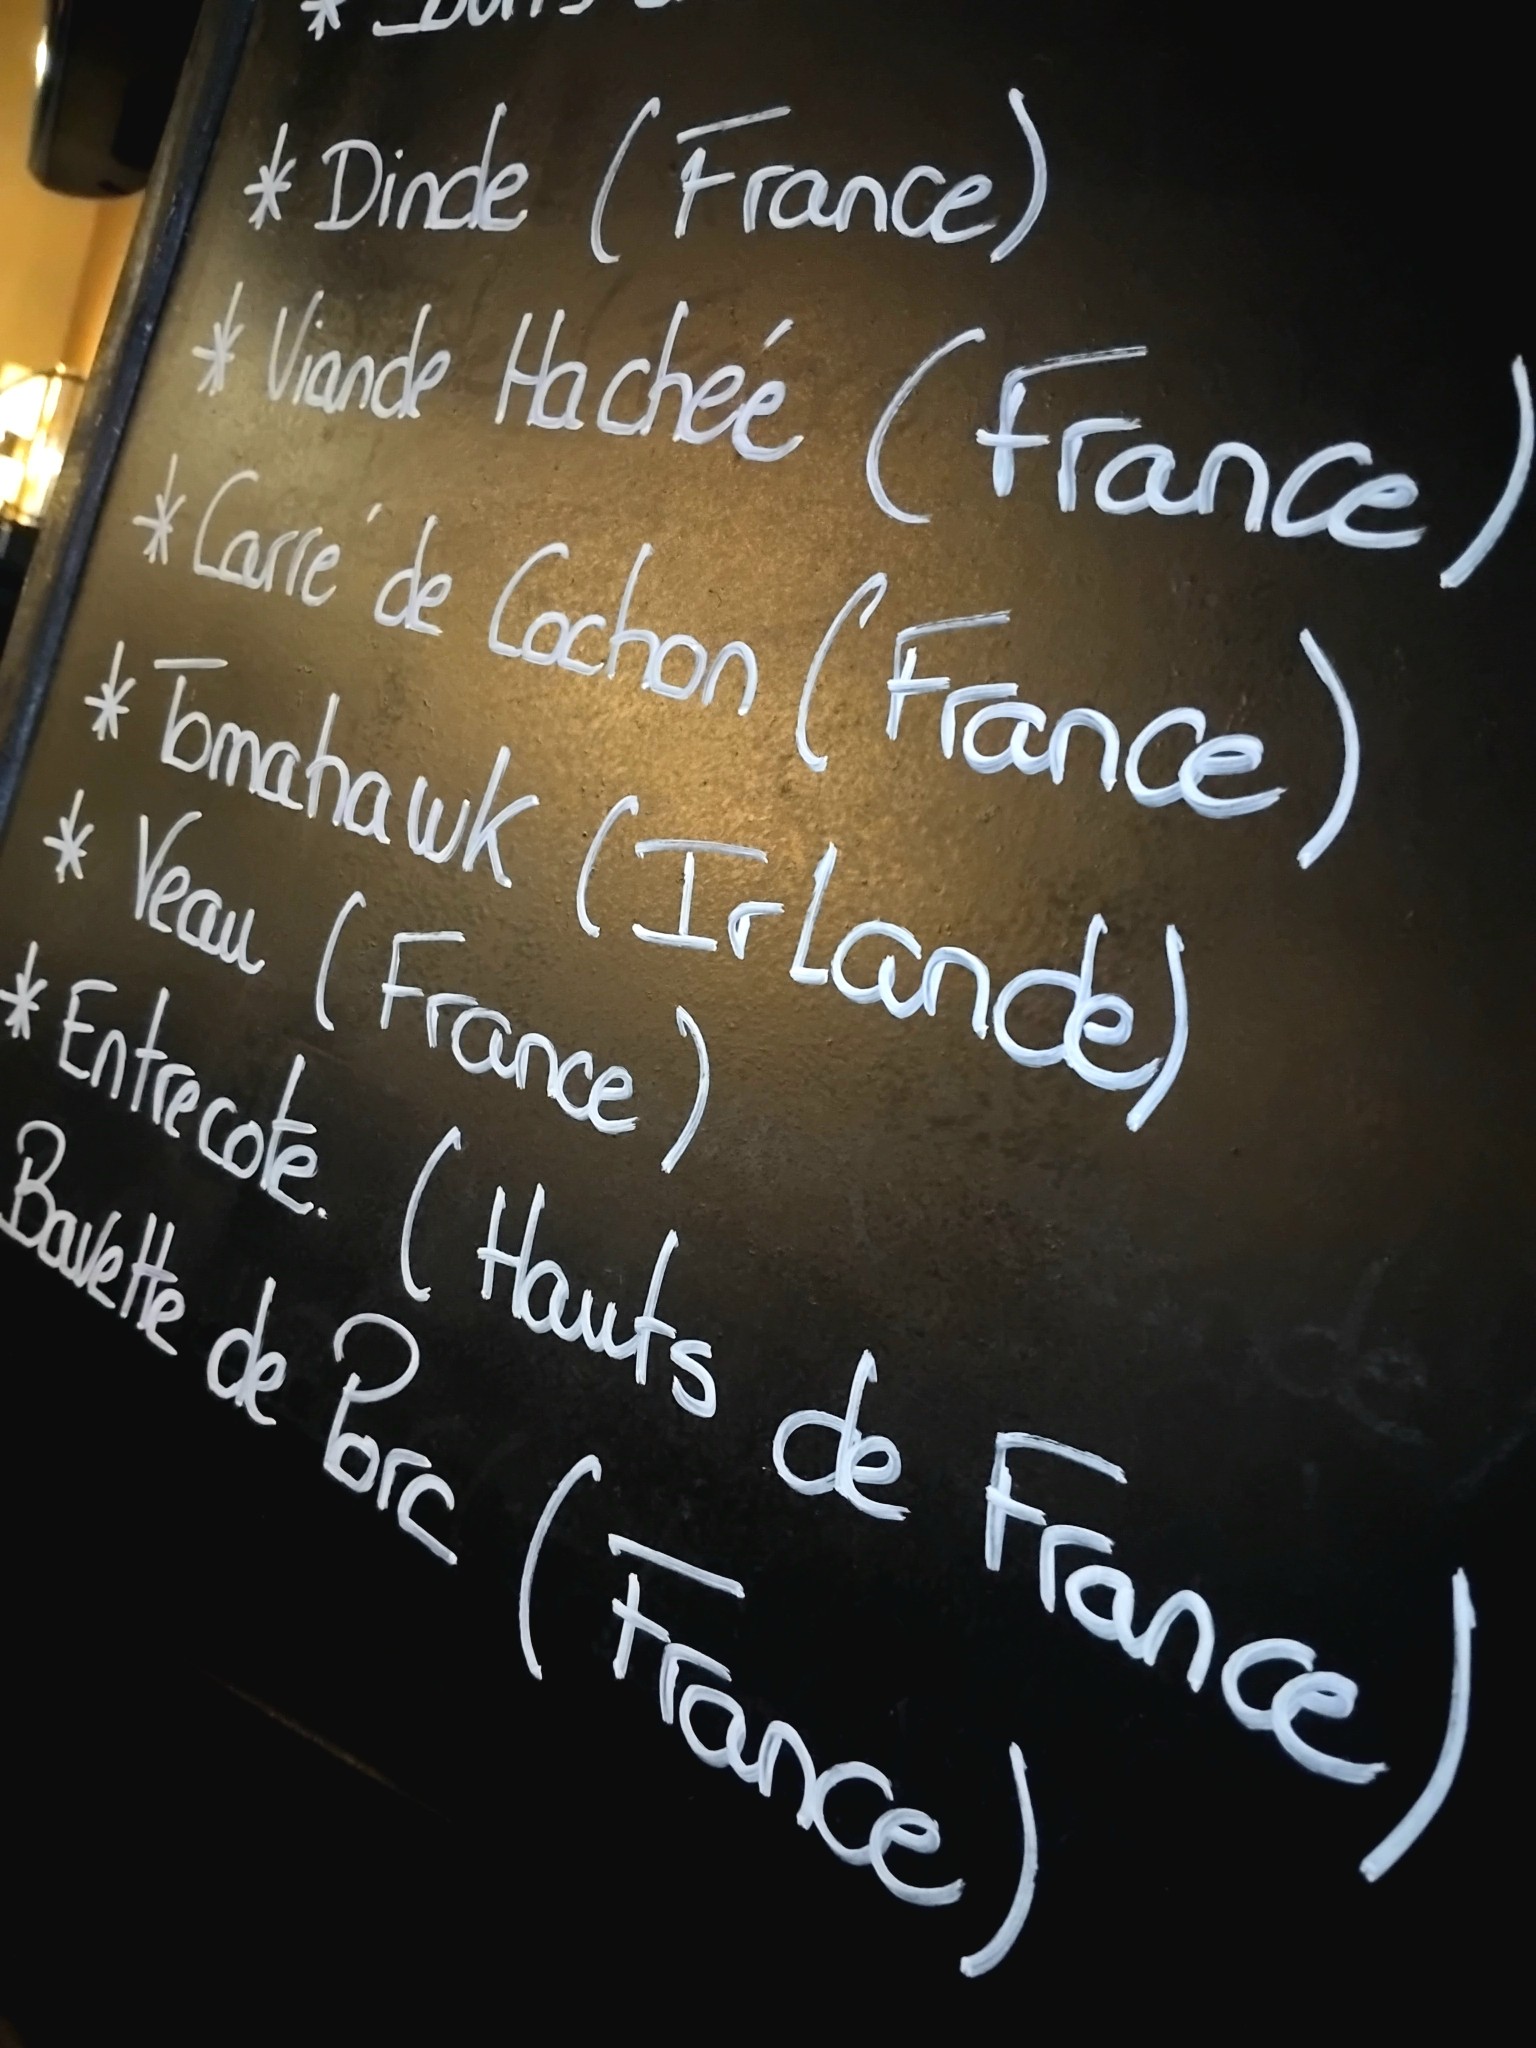 * Dinde (France)
* Viande Hacheé (France)
* Carré de Cochon (France)
* Tomahawk (IrLande)
* Veau (France)
* Entrecote. (Hauts de France)
Bavette de Porc (France)